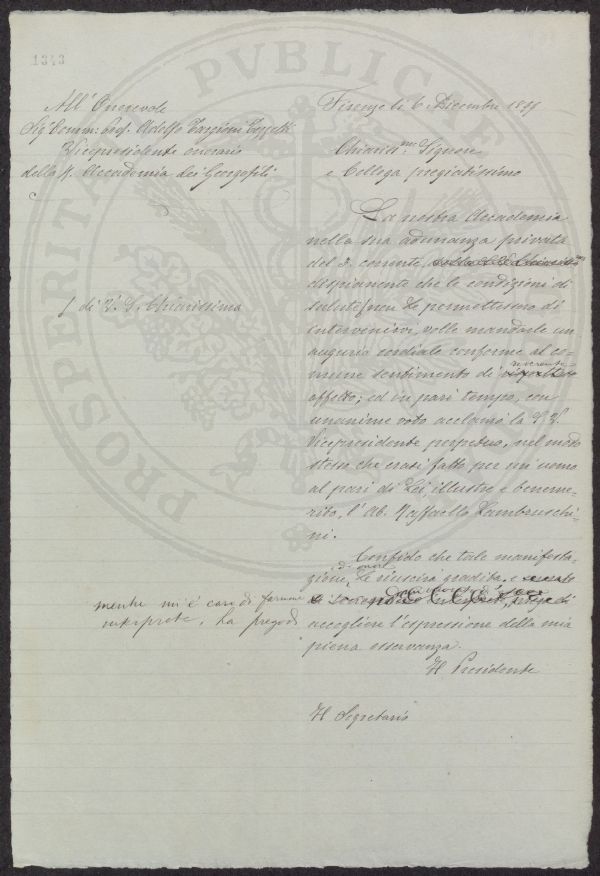 1343
All' Onorevole
Sig. Comm. Prof. Adolfo Targioni Tozzetti
Vicepresidente onorario
della R. Accademia dei Georgofili
Firenze li 6 Dicembre 18
Chiariss.mo Signore
e Collega pregiatissimo
La nostra Accademia
nella sua adunanza privata
del 3. corrente,
dispiacente che le condizioni di
salute ſ non Le permettessero di
intervenirvi, volle mandarle un
augurio cordiale conforme al co-
mune sentimento di reverente
affetto; ed in pari tempo, con
unanime voto acclamò la S. V.
Vicepresidente perpetuo, nel modo
stesso che erasi fatto per un uomo
al pari di Lei, illustre e beneme-
rito, l'Ab. Raffaello Lambruschi-
ni.
ſ di V. S. Chiarissima
Confido che tale manifesta-
zione, Le riuscirà gradita, e
mentre mi è caro di farmene
interprete, La prego di
accogliere l'espressione della mia
piena osservanza.
Il Presidente
Il Segretario
PROSPERITA PVBLICAE